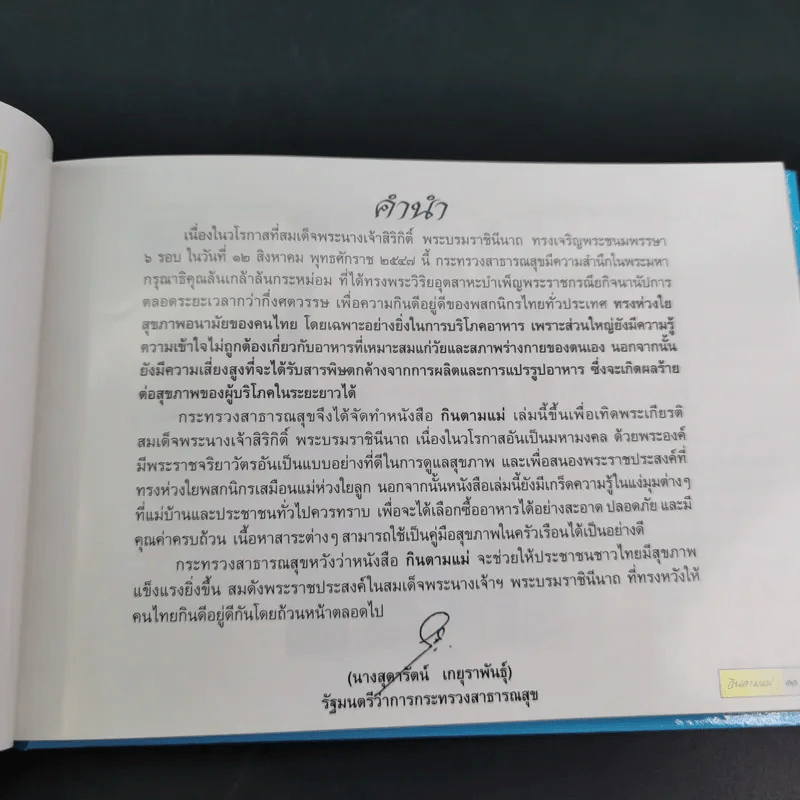 คำนำ
เนื่องในวโรกาสที่สมเด็จพระนางเจ้าสิริกิติ์ พระบรมราชินีนาถ ทรงเจริญพระชนมพรรษา
๖ รอบ ในวันที่ ๑๒ สิงหาคม พุทธศักราช ๒๕๔๗ นี้ กระทรวงสาธารณสุขมีความสำนึกในพระมหา
กรุณาธิคุณล้นเกล้าล้นกระหม่อม ที่ได้ทรงพระวิริยอุตสาหะบำเพ็ญพระราชกรณียกิจนานัปการ
ตลอดระยะเวลากว่ากึ่งศตวรรษ เพื่อความกินดีอยู่ดีของพสกนิกรไทยทั่วประเทศ ทรงห่วงใย
สุขภาพอนามัยของคนไทย โดยเฉพาะอย่างยิ่งในการบริโภคอาหาร เพราะส่วนใหญ่ยังมีความรู้
ความเข้าใจไม่ถูกต้องเกี่ยวกับอาหารที่เหมาะสมแก่วัยและสภาพร่างกายของตนเอง นอกจากนั้น
ยังมีความเสี่ยงสูงที่จะได้รับสารพิษตกค้างจากการผลิตและการแปรรูปอาหาร ซึ่งจะเกิดผลร้าย
ต่อสุขภาพของผู้บริโภคในระยะยาวได้
กระทรวงสาธารณสุขจึงได้จัดทำหนังสือ กินตามแม่ เล่มนี้ขึ้นเพื่อเทิดพระเกียรติ
สมเด็จพระนางเจ้าสิริกิติ์ พระบรมราชินีนาถ เนื่องในวโรกาสอันเป็นมหามงคล ด้วยพระองค์
มีพระราชจริยาวัตรอันเป็นแบบอย่างที่ดีในการดูแลสุขภาพ และเพื่อสนองพระราชประสงค์ที่
ทรงห่วงใยพสกนิกรเสมือนแม่ห่วงใยลูก นอกจากนั้นหนังสือเล่มนี้ยังมีเกร็ดความรู้ในแง่มุมต่างๆ
ที่แม่บ้านและประชาชนทั่วไปควรทราบ เพื่อจะได้เลือกซื้ออาหารได้อย่างสะอาด ปลอดภัย และมี
คุณค่าครบถ้วน เนื้อหาสาระต่างๆ สามารถใช้เป็นคู่มือสุขภาพในครัวเรือนได้เป็นอย่างดี
กระทรวงสาธารณสุขหวังว่าหนังสือ กินตามแม่ จะช่วยให้ประชาชนชาวไทยมีสุขภาพ
แข็งแรงยิ่งขึ้น สมดังพระราชประสงค์ในสมเด็จพระนางเจ้าฯ พระบรมราชินีนาถ ที่ทรงหวังให้
คนไทยกินดีอยู่ดีกันโดยถ้วนหน้าตลอดไป
(นางสุดารัตน์ เกยุราพันธุ์)
รัฐมนตรีว่าการกระทรวงสาธารณสุข
กินตามแม่